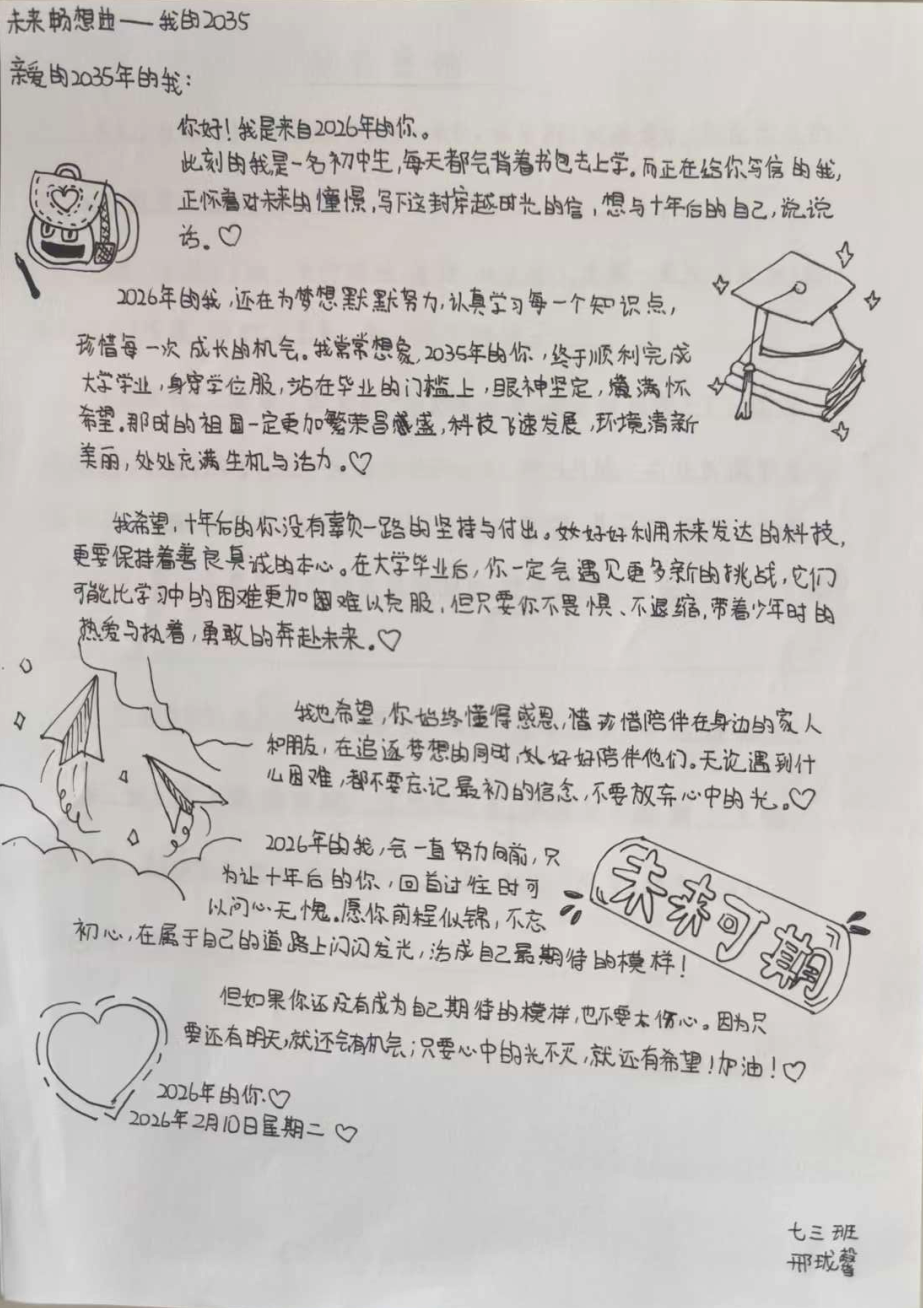 未来畅想曲——我的2035
亲爱的2035年的我：
你好！我是来自2026年的你。
此刻的我是一名初中生，每天都会背着书包去上学。而正在给你写信的我，
正怀着对未来的憧憬，写下这封穿越时光的信，想与十年后的自己，说说
话。♡
2026年的我，还在为梦想默默努力，认真学习每一个知识点，
珍惜每一次成长的机会。我常常想象，2035年的你，终于顺利完成
大学学业，身穿学位服，站在毕业的门槛上，眼神坚定，满怀
希望。那时的祖国一定更加繁荣昌盛，科技飞速发展，环境清新
美丽，处处充满生机与活力。♡
我希望，十年后的你没有辜负一路的坚持与付出。好好利用未来发达的科技，
更要保持着善良真诚的本心。在大学毕业后，你一定会遇见更多新的挑战，它们
可能比学习中的困难更加困难以克服，但只要你不畏惧、不退缩，带着少年时的
热爱与执着，勇敢的奔赴未来。♡
我也希望，你始终懂得感恩，惜珍惜陪伴在身边的家人
和朋友，在追逐梦想的同时，好好陪伴他们。无论遇到什
么困难，都不要忘记最初的信念，不要放弃心中的光。♡
2026年的我，会一直努力向前，只
为让十年后的你，回首过往时可
以问心无愧。愿你前程似锦，不忘
初心，在属于自己的道路上闪闪发光，活成自己最期待的模样！
未来可期
但如果你还没有成为自己期待的模样，也不要太伤心。因为只
要还有明天，就还会有机会；只要心中的光不灭，就还有希望！加油！♡
2026年的你.♡
2026年2月10日星期二 ♡
七三班
邢珑馨